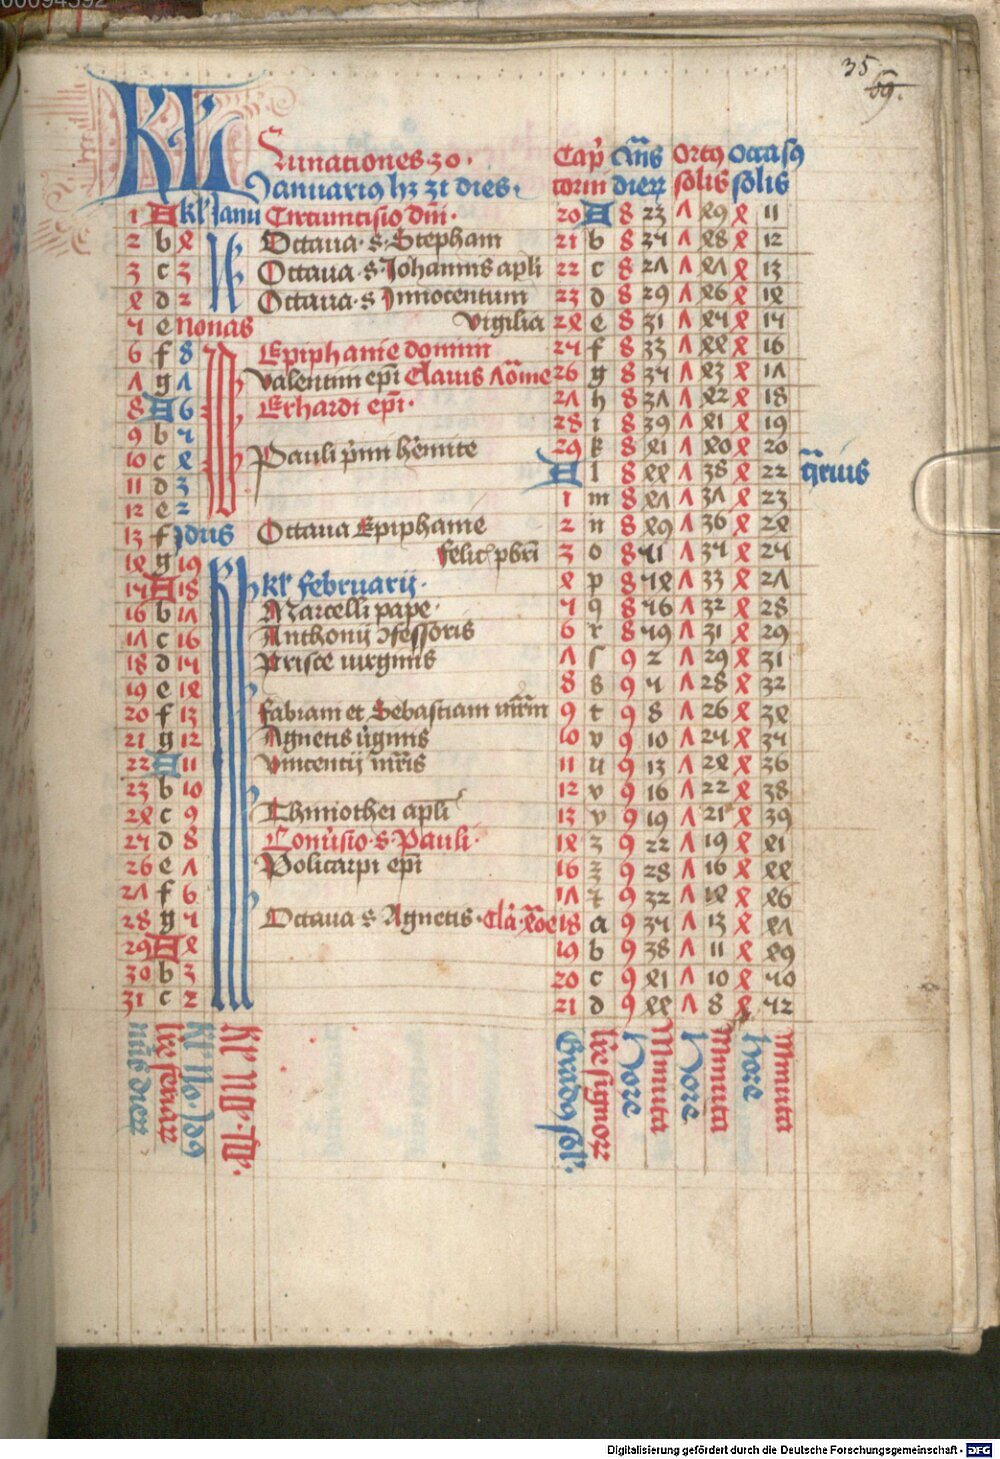 35
69.
KL Lunationes 30. Capͥ Qͣns Ortꝰ Occasꝰ
Januariꝰ hꝫ 31 dies. corni dieꝝ solis solis
1 A kl' Janu Circumcisio dn̄i. 20 A 8 23 7 49 4 11
2 b 4 Octaua s Stephani 21 b 8 25 7 48 4 12
3 c 3 Octaua s Johannis apli 22 c 8 27 7 47 4 13
4 d 2 Octaua s Innocentum 23 d 8 29 7 46 4 14
5 e nonas Vigilia 24 e 8 31 7 45 4 15
6 f 8 Epiphanie domini 25 f 8 33 7 44 4 16
7 g 7 Valentini ep̄i Clauis 70me 26 g 8 35 7 43 4 17
8 A 6 Erhardi ep̄i. 27 h 8 37 7 42 4 18
9 b 5 28 i 8 39 7 41 4 19
10 c 4 Pauli pͥmi h'emite 29 k 8 41 7 40 4 20
11 d 3 l 8 44 7 38 4 22 aq̄rius
12 e 2 1 m 8 47 7 37 4 23
13 f Jdus Octaua Epiphanie 2 n 8 49 7 36 4 24
14 g 19 felic' pbr̄i 3 o 8 51 7 35 4 25
15 A 18 kl' februarij. 4 p 8 54 7 33 4 27
16 b 17 Marcelli pape. 5 q 8 56 7 32 4 28
17 c 16 Anthonij ɔfessoris 6 r 8 59 7 31 4 29
18 d 15 Prisce uirginis 7 ſ 9 2 7 29 4 31
19 e 14 8 s 9 5 7 28 4 32
20 f 13 fabiani et Sebastiani mr̄m 9 t 9 8 7 26 4 34
21 g 12 Agnetis ūginis 10 v 9 10 7 25 4 35
22 A 11 Vincentij mr̄is 11 u 9 13 7 24 4 36
23 b 10 12 v 9 16 7 22 4 38
24 c 9 Thimothei apli 13 v 9 19 7 21 4 39
25 d 8 Conu'sio s Pauli. 14 z 9 22 7 19 4 41
26 e 7 Policarpi ep̄i 16 z 9 28 7 16 4 44
27 f 6 17 z 9 32 7 14 4 46
28 g 5 Octaua s Agnetis. Cla' 40e 18 a 9 35 7 13 4 47
29 A 4 19 b 9 38 7 11 4 49
30 b 3 20 c 9 41 7 10 4 50
31 c 2 21 d 9 44 7 8 4 52
nūs dieꝝ
lr̄e feriaꝝ
kl' No. Jdꝰ
kl' No. Jd'.
Gradꝰ sol'.
lr̄e signoꝝ
Hore
Minuta
Hore
Minuta
hore
Minuta
Digitalisierung gefördert durch die Deutsche Forschungsgemeinschaft - DFG